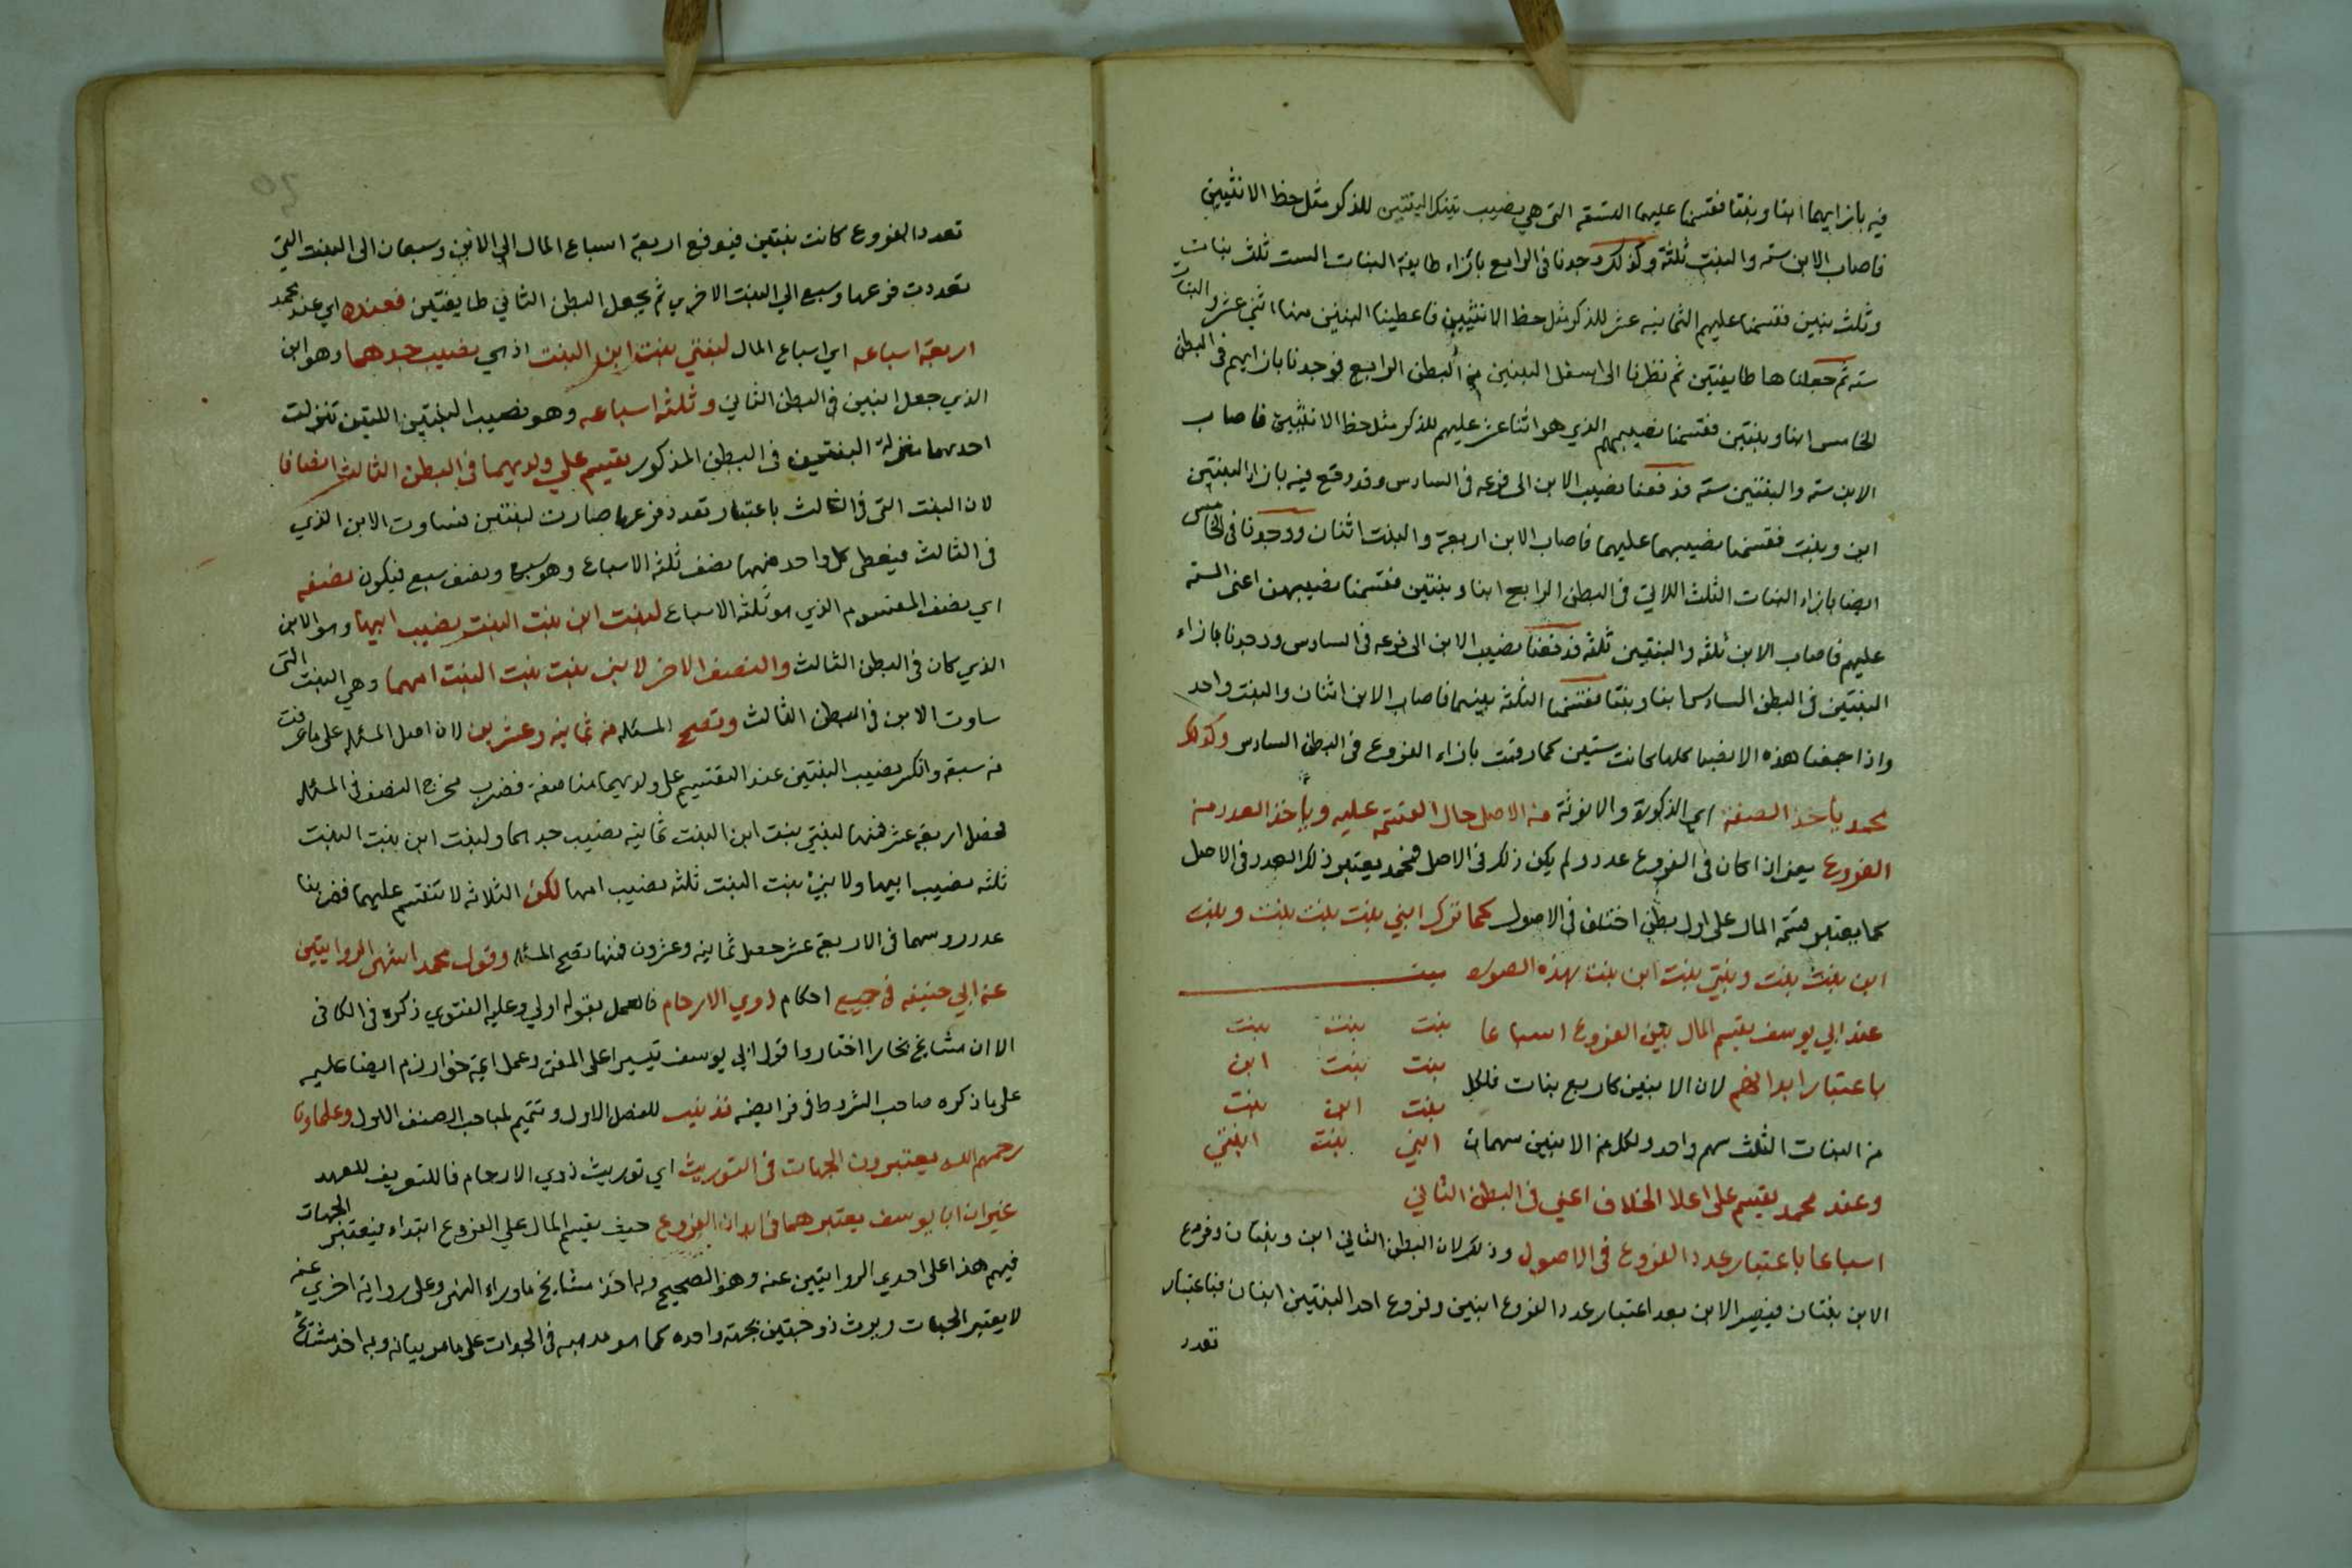 فيه بازايهما ابنا وبنتا فقسمنا عليهما الستة التى هي نصيب تينك البنتين للذكر مثل حظ الانثيين
فاصاب الابن ستة والبنت ثلثة وكذلك وجدنا فى الرابع بازاء طايفة البنات الست ثلث بنات
وثلث بنين فقسمنا عليهم الثمانيه عشر للذكر مثل حظ الانثيين فاعطينا البنين منها اثني عشر والبنات
سته ثم جعلناها طايفتين ثم نظرنا الى اسفل البنين من البطن الرابع فوجدنا بازايهم فى البطن
الخامس ابنا وبنتين فقسمنا نصيبهم الذي هو اثنا عشر عليهم للذكر مثل حظ الانثيين فاصاب
الابن سته والبنتين سته فدفعنا نصيب الابن الى فرعه فى السادس وقد وقع فيه بازاء البنتين
ابن وبنت فقسمنا نصيبهما عليهما فاصاب الابن اربعة والبنت اثنان ووجدنا فى الخامس
ايضا بازاء البنات الثلث اللاتي فى البطن الرابع ابنا وبنتين فقسمنا نصيبهن اعنى الستة
عليهم فاصاب الابن ثلثه والبنتين ثلثه فدفعنا نصيب الابن الى فرعه فى السادس ووجدنا بازاء
البنتين فى البطن السادس ابنا وبنتا فقسمنا الثلثة بينهما فاصاب الابن اثنان والبنت واحد
واذا جمعنا هذه الانصبا كلها كانت ستين كما رقمت بازاء الفروع فى البطن السادس وكذلك
محمد يأخذ الصفة اي الذكورة والانوثة من الاصل حال القسمة عليه ويأخذ العدد من
الفروع يعنى اذا كان فى الفروع عدد ولم يكن ذلك فى الاصل فمحمد يعتبر ذلك العدد فى الاصل
كما يعتبر قسمة المال على اول بطن اختلف فى الاصول كما ترك ابني بنت بنت بنت وبنت
ابن بنت بنت وبنتي بنت ابن بنت بهذه الصورة ميت
عند ابي يوسف يقسم المال بين الفروع اسباعا بنت بنت بنت
باعتبار ابدانهم لان الابنين كاربع بنات فلكل بنت بنت ابن
بنت ابن بنت
من البنات الثلث سهم واحد ولكل من الابنين سهمان ابني بنت ابنتي
وعند محمد يقسم على اعلا الخلاف اعني فى البطن الثاني
اسباعا باعتبار عدد الفروع فى الاصول وذلك لان البطن الثاني ابن وبنتان وفروع
الابن بنتان فيصير الابن بعد اعتبار عدد الفروع ابنين وفروع احد البنتين ابنان فباعتبار
تعدد
تعدد الفروع كانت بنتين فيدفع اربعة اسباع المال الى الابن وسبعان الى البنت التي
تعددت فرعها وسبع الي البنت الاخري ثم يجعل البطن الثاني طايفتين فعنده اي عند محمد
اربعة اسباعه اي اسباع المال لبنتي بنت ابن البنت اذ هي نصيب جدهما وهو ابن
الذي جعل ابنين فى البطن الثاني وثلثه اسباعه وهو نصيب البنتين اللتين تنزلت
احديهما منزلة البنتين فى البطن المذكور يقسم علي ولديهما فى البطن الثالث انصافا
لان البنت التى فى الثالث باعتبار تعدد فرعها صارت لبنتين فساوت الابن الذي
فى الثالث فيعطى كل واحد منهما نصف ثلثه الاسباع وهو سبع ونصف سبع فيكون نصفه
اي نصف المقسوم الذي هو ثلثة الاسباع لبنت ابن بنت البنت نصيب ابيها وهو الابن
الذي كان فى البطن الثالث والنصف الاخر لابني بنت بنت البنت امهما وهي البنت التى
ساوت الابن فى البطن الثالث وتصح المسئله من ثمانيه وعشرين لان اصل المسئله على ما عرفت
من سبعة وانكسر نصيب البنتين عند التقسيم على ولديهما مناصفة فضرب مخرج النصف فى المسئله
فحصل اربعة عشر فمنها لبنتي بنت ابن البنت ثمانيه نصيب جدهما ولبنت ابن بنت البنت
ثلثه نصيب ابيها ولابني بنت البنت ثلثه نصيب امها لكن الثلاثه لا تنقسم عليهما فضربنا
عدد روسهما فى الاربعة عشر حصل ثمانيه وعشرون فمنها تصح المسئله وقول محمد اشهر الروايتين
عن ابي حنيفه فى جميع احكام ذوي الارحام فالعمل بقوله اولي وعليه الفتوي ذكره فى الكافى
الا ان مشايخ بخارا اختاروا قول ابي يوسف تيسيرا على المفتى وعمل ايمة خوارزم ايضا عليه
على ما ذكره صاحب الشروط فى فرايضه تذنيب للفصل الاول وتتميم لمباحث الصنف الاول وعلماونا
رحمهم الله يعتبرون الجهات فى التوريث اي توريث ذوي الارحام فاللتعريف للعهد
غير ان ابا يوسف يعتبرهما فى ابدان الفروع حيث يقسم المال علي الفروع ابتداء فيعتبر الجهات
فيهم هذا على احدي الروايتين عنه وهذا الصحيح وبه اخذ مشايخ ماوراء النهر وعلى رواية اخري عنه
لا يعتبر الجهات ويورث ذو جهتين بجهة واحده كما هو مذهبه فى الجدات على ما مر بيانه وبه اخذ مشايخ